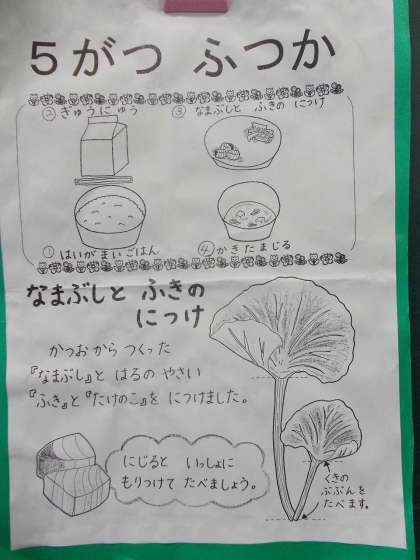 5がつ ふつか
②ぎゅうにゅう
③ なまぶしと ふきの につけ
① はいがまいごはん
④かきたまじる
なまぶしと ふきの
につけ
かつおからつくった
『なまぶし』と はるの やさい
『ふき』と『たけのこ』を につけました。
にじると いっしょに
もりつけて たべましょう。
くきの
ぶぶんを
たべます。